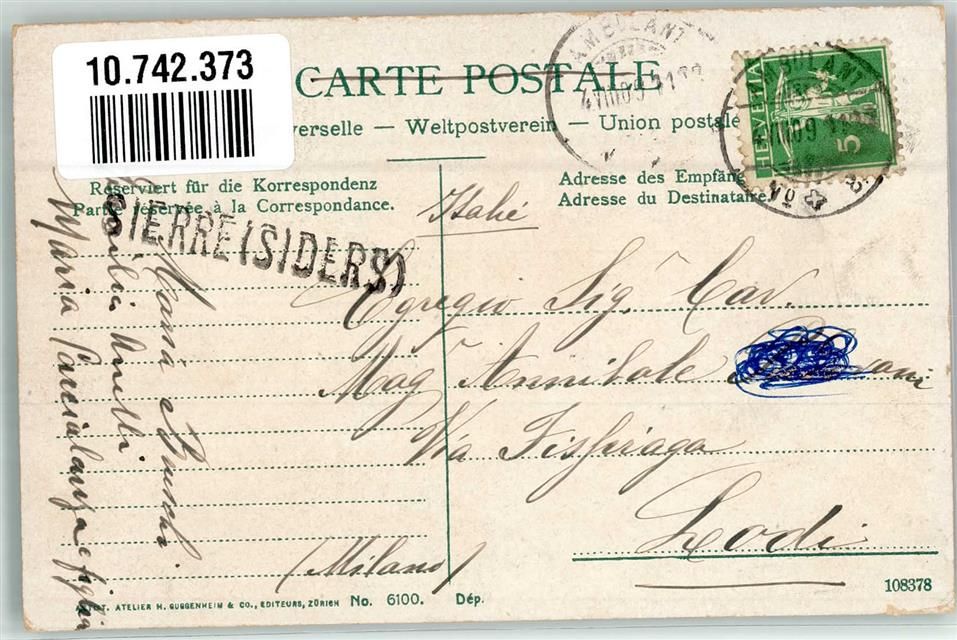 10.742.373
CARTE POSTALE
verselle — Weltpostverein — Union postale
AMBULANT
4 VIII 09
AMBULANT
VIII 09
HELVETIA
5
Reserviert für die Korrespondenz
Partie réservée à la Correspondance.
Adresse des Empfäng
Adresse du Destinataire.
Italie
SIERRE (SIDERS)
Egregio Sig. Cav.
Mag Annibale
Via Fissiraga
Lodi
(Milano)
Maria
Maria e
108378
ATELIER H. GUGGENHEIM & CO., EDITEURS, ZÜRICH No. 6100. Dép.